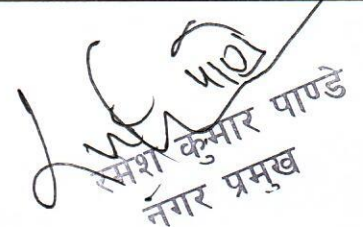 रमेश कुमार पाण्डे
नगर प्रमुख